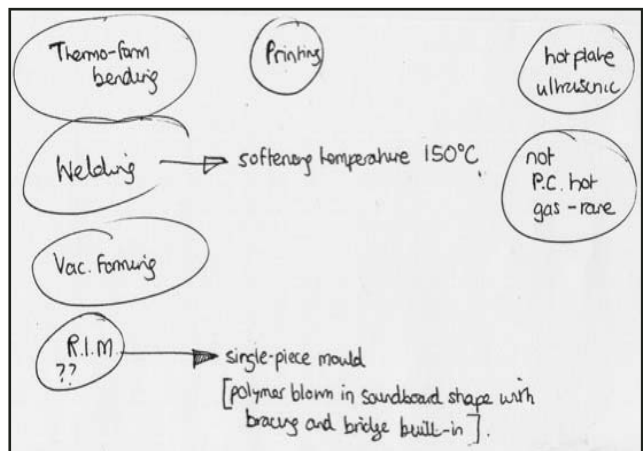 Thermo-form
bending
Printing
hot plate
ultrasonic
Welding
softening temperature 150°C
not
P.C. hot
gas - rare
Vac. Forming
R.I.M
??
single-piece mould
[polymer blown in soundboard shape with
bracing and bridge built-in].